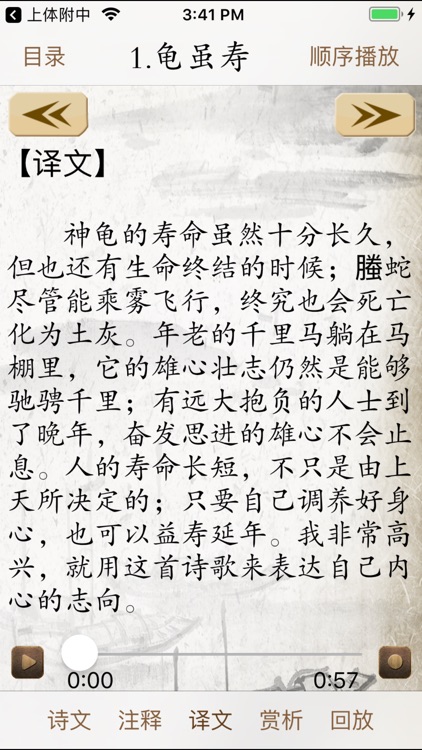 上体附中 3:41 PM
目录 1.龟虽寿 顺序播放
【译文】
神龟的寿命虽然十分长久，
但也还有生命终结的时候；螣蛇
尽管能乘雾飞行，终究也会死亡
化为土灰。年老的千里马躺在马
棚里，它的雄心壮志仍然是能够
驰骋千里；有远大抱负的人士到
了晚年，奋发思进的雄心不会止
息。人的寿命长短，不只是由上
天所决定的；只要自己调养好身
心，也可以益寿延年。我非常高
兴，就用这首诗歌来表达自己内
心的志向。
0:00 0:57
诗文 注释 译文 赏析 回放